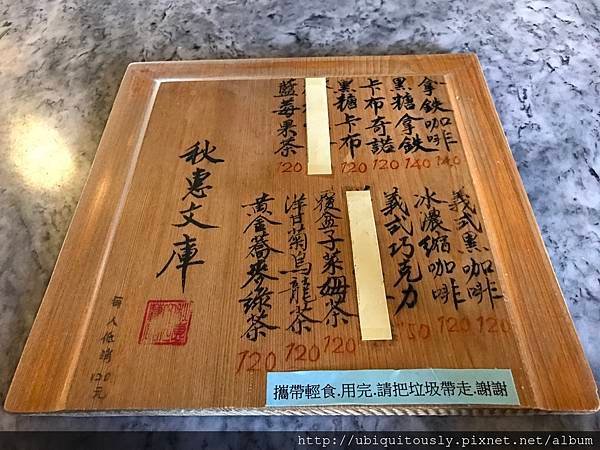 拿鉄咖啡 140
黑糖拿鉄 140
卡布奇諾 120
黑糖卡布 120
藍莓果茶 120
義式黑咖啡 120
冰濃縮咖啡 120
義式巧克力 150
覆盆子萊姆茶 120
洋甘菊烏龍茶 120
黃金蕎麥綠茶 120
秋惠文庫
每人低消120元
攜帶輕食.用完.請把垃圾帶走.謝謝
http://ubiquitously.pixnet.net/album